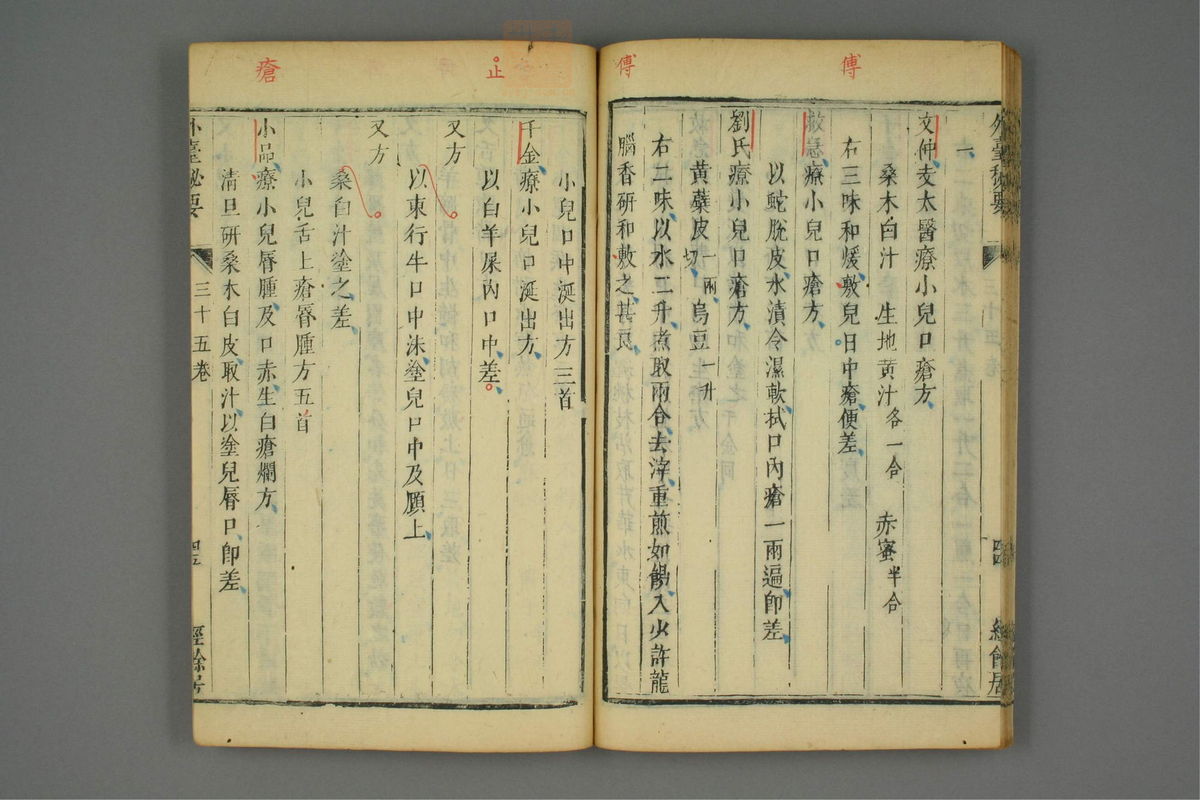 傅
傅
外臺秘要
四
經餘居
一
文仲支太醫療小兒口瘡方
桑木白汁 生地黄汁各一合 赤蜜半合
右三味和煖敷兒口中瘡便差
救急療小兒口瘡方
以蛇脫皮水漬令濕軟拭口內瘡一兩遍即差
劉氏療小兒口瘡方
黃蘗皮一兩切 烏豆一升
右二味以水二升煮取兩合去滓重煎如餳入少許龍
腦香研和敷之甚良
止
瘡
小兒口中涎出方三首
千金療小兒口涎出方
以白羊屎內口中差
又方
以東行牛口中沫塗兒口中及頤上
又方
桑白汁塗之差
小兒舌上瘡脣腫方五首
小品療小兒脣腫及口赤生白瘡爛方
清旦研桑木白皮取汁以塗兒脣口即差
外臺秘要
三十五卷
經餘居